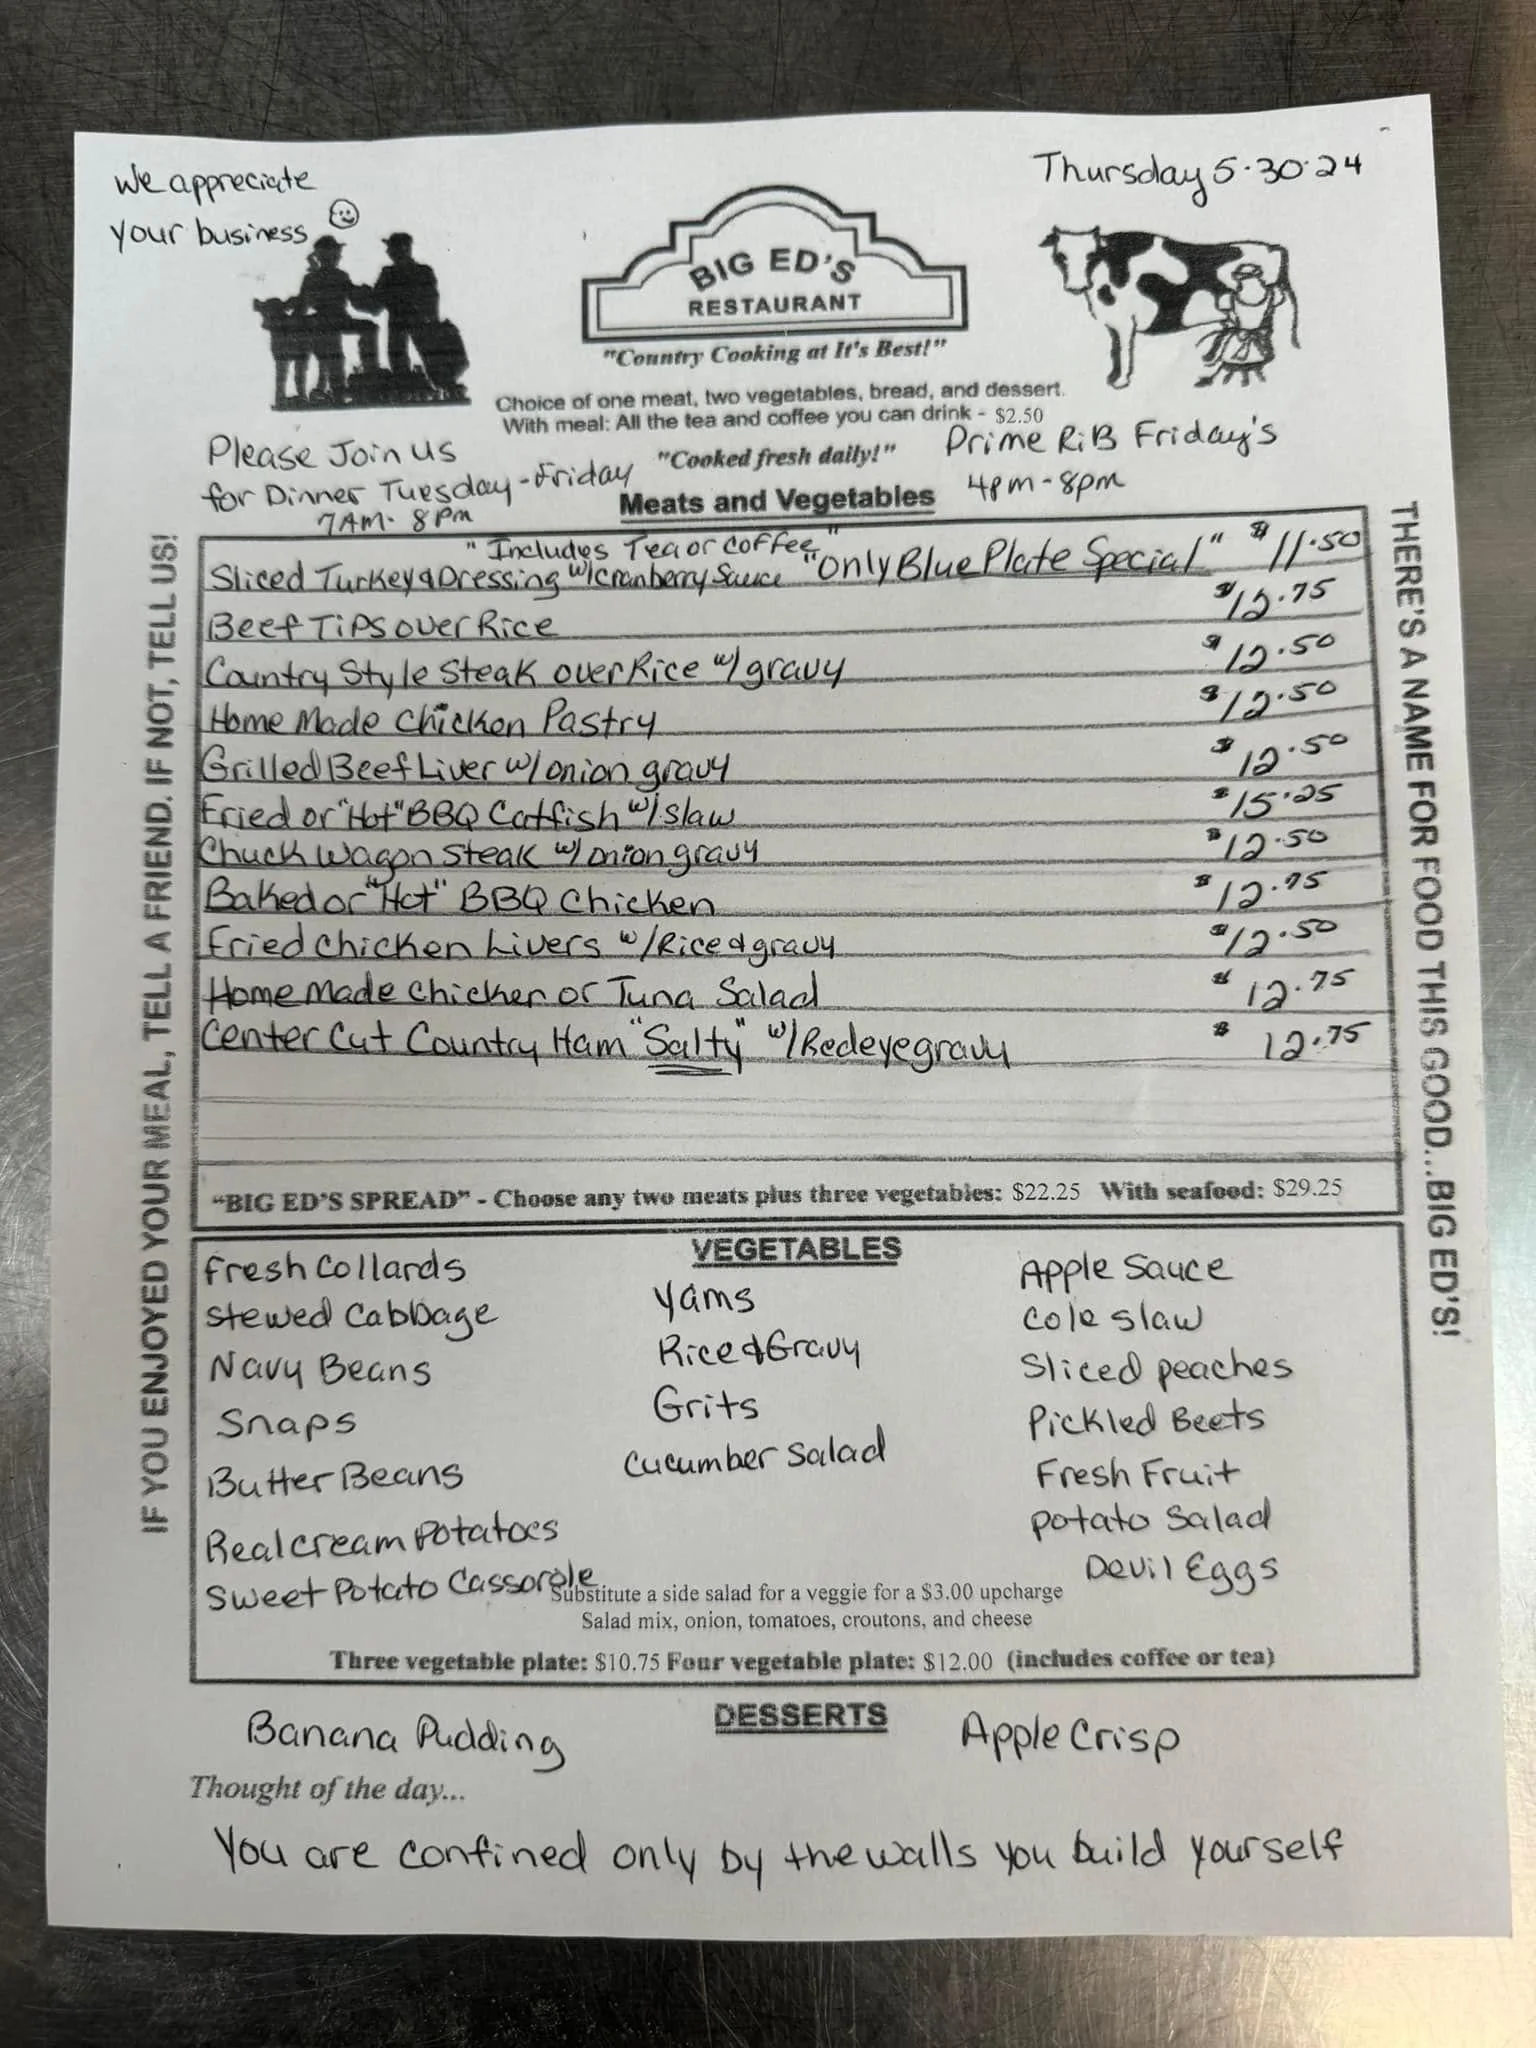 We appreciate
your business
Thursday 5.30.24
BIG ED'S
RESTAURANT
"Country Cooking at It's Best!"
Choice of one meat, two vegetables, bread, and dessert.
With meal: All the tea and coffee you can drink - $2.50
Please Join us
for Dinner Tuesday - Friday
7AM - 8Pm
"Cooked fresh daily!"
Prime RiB Friday's
4pm - 8pm
Meats and Vegetables
IF YOU ENJOYED YOUR MEAL, TELL A FRIEND. IF NOT, TELL US!
THERE'S A NAME FOR FOOD THIS GOOD...BIG ED'S!
"Includes Tea or Coffee"
Sliced Turkey & Dressing w/cranberry Sauce "Only Blue Plate Special" $11.50
Beef Tips over Rice $12.75
Country Style Steak over Rice w/ gravy $12.50
Home Made Chicken Pastry $12.50
Grilled Beef Liver w/ onion gravy $12.50
Fried or "Hot" BBQ Catfish w/ slaw $15.25
Chuck Wagon Steak w/ onion gravy $12.50
Baked or "Hot" BBQ Chicken $12.75
Fried Chicken Livers w/ Rice & gravy $12.50
Home Made Chicken or Tuna Salad $12.75
Center Cut Country Ham "Salty" w/ Redeye gravy $12.75
"BIG ED'S SPREAD" - Choose any two meats plus three vegetables: $22.25 With seafood: $29.25
VEGETABLES
Fresh Collards
Stewed Cabbage
Navy Beans
Snaps
Butter Beans
Real cream Potatoes
Sweet Potato Cassorole
Yams
Rice & Gravy
Grits
Cucumber Salad
Apple Sauce
Cole slaw
Sliced peaches
Pickled Beets
Fresh Fruit
Potato Salad
Devil Eggs
Substitute a side salad for a veggie for a $3.00 upcharge
Salad mix, onion, tomatoes, croutons, and cheese
Three vegetable plate: $10.75 Four vegetable plate: $12.00 (includes coffee or tea)
DESSERTS
Banana Pudding
Apple Crisp
Thought of the day...
You are confined only by the walls you build yourself